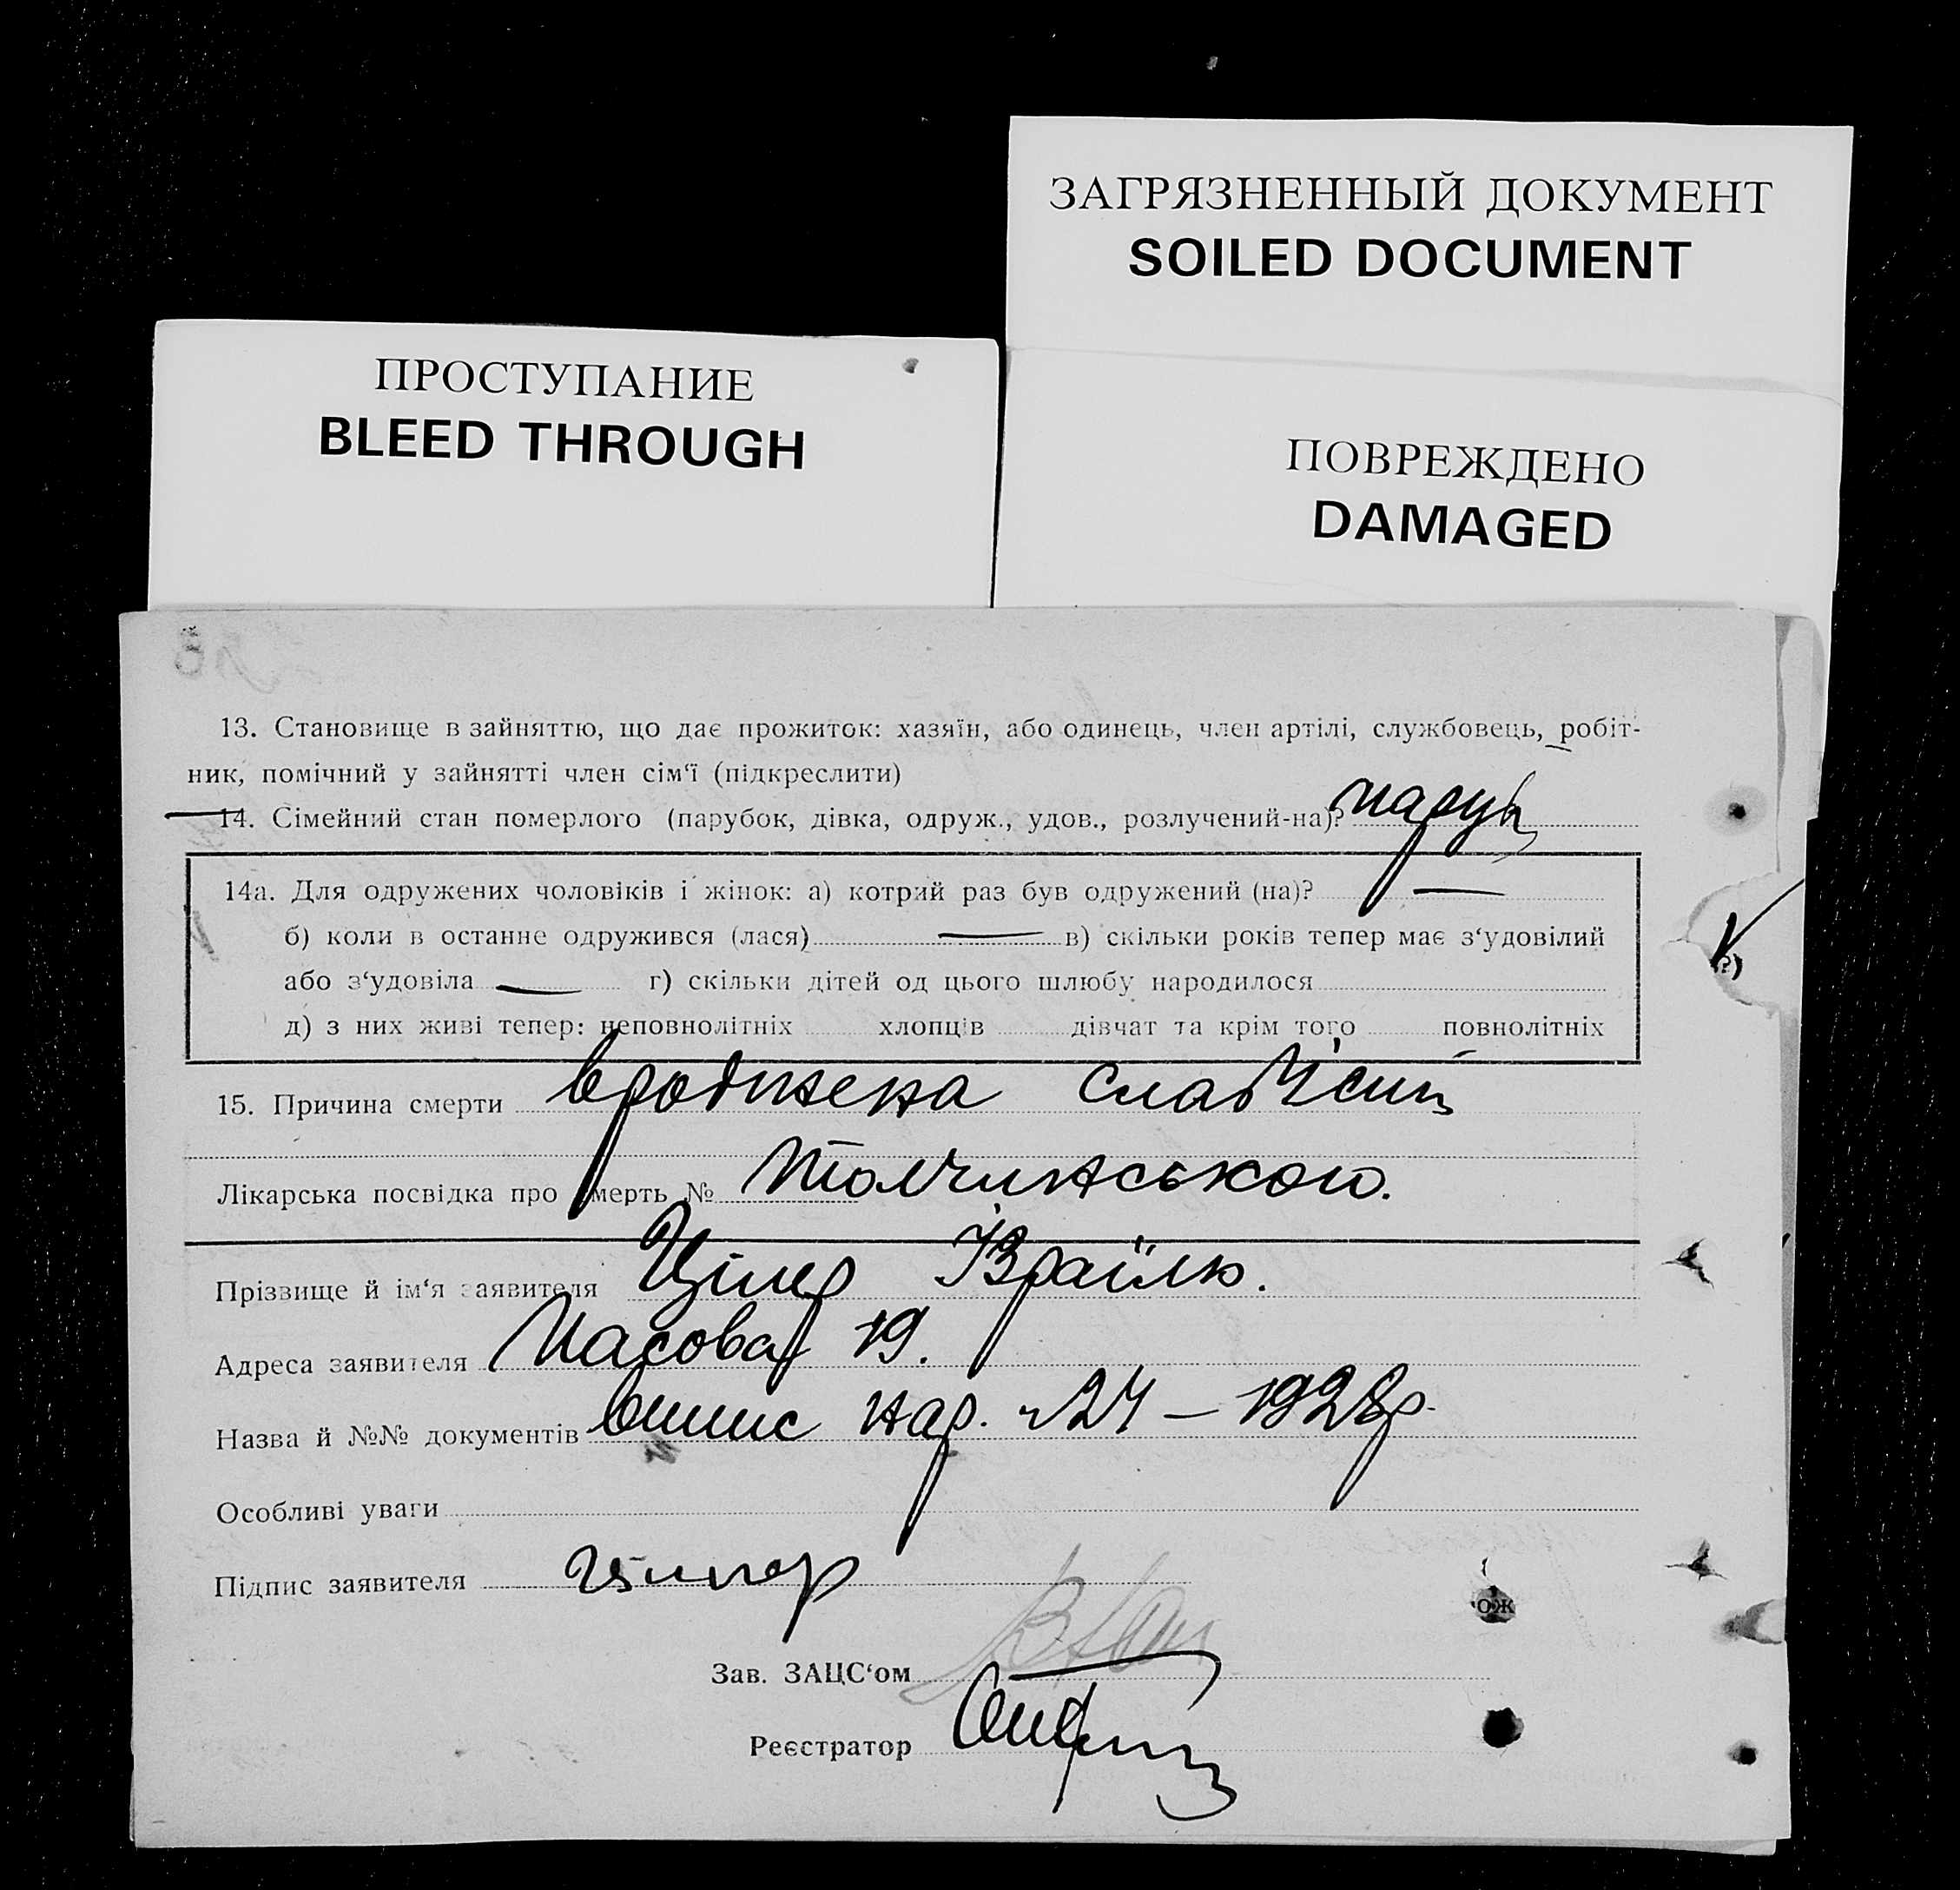 ЗАГРЯЗНЕННЫЙ ДОКУМЕНТ
SOILED DOCUMENT
ПРОСТУПАНИЕ
BLEED THROUGH
ПОВРЕЖДЕНО
DAMAGED
13. Становище в зайняттю, що дає прожиток: хазяїн, або одинець, член артілі, службовець, робіт-
ник, помічний у зайнятті член сім‘ї (підкреслити)
14. Сімейний стан померлого (парубок, дівка, одруж., удов., розлучений-на)? паруб
14а. Для одружених чоловіків і жінок: а) котрий раз був одружений (на)? —
б) коли в останне одружився (лася) — в) скільки років тепер має з‘удовілий
або з‘удовіла — г) скільки дітей од цього шлюбу народилося
д) з них живі тепер: неповнолітніх хлопців дівчат та крім того повнолітніх
15. Причина смерти вроджена
Лікарська посвідка про смерть № Толчинською.
Прізвище й ім‘я заявителя Ізраїль.
Адреса заявителя 19.
Назва й №№ документів випис нар. 1928р.
Особливі уваги
Підпис заявителя
Зав. ЗАЦС‘ом
Реєстратор